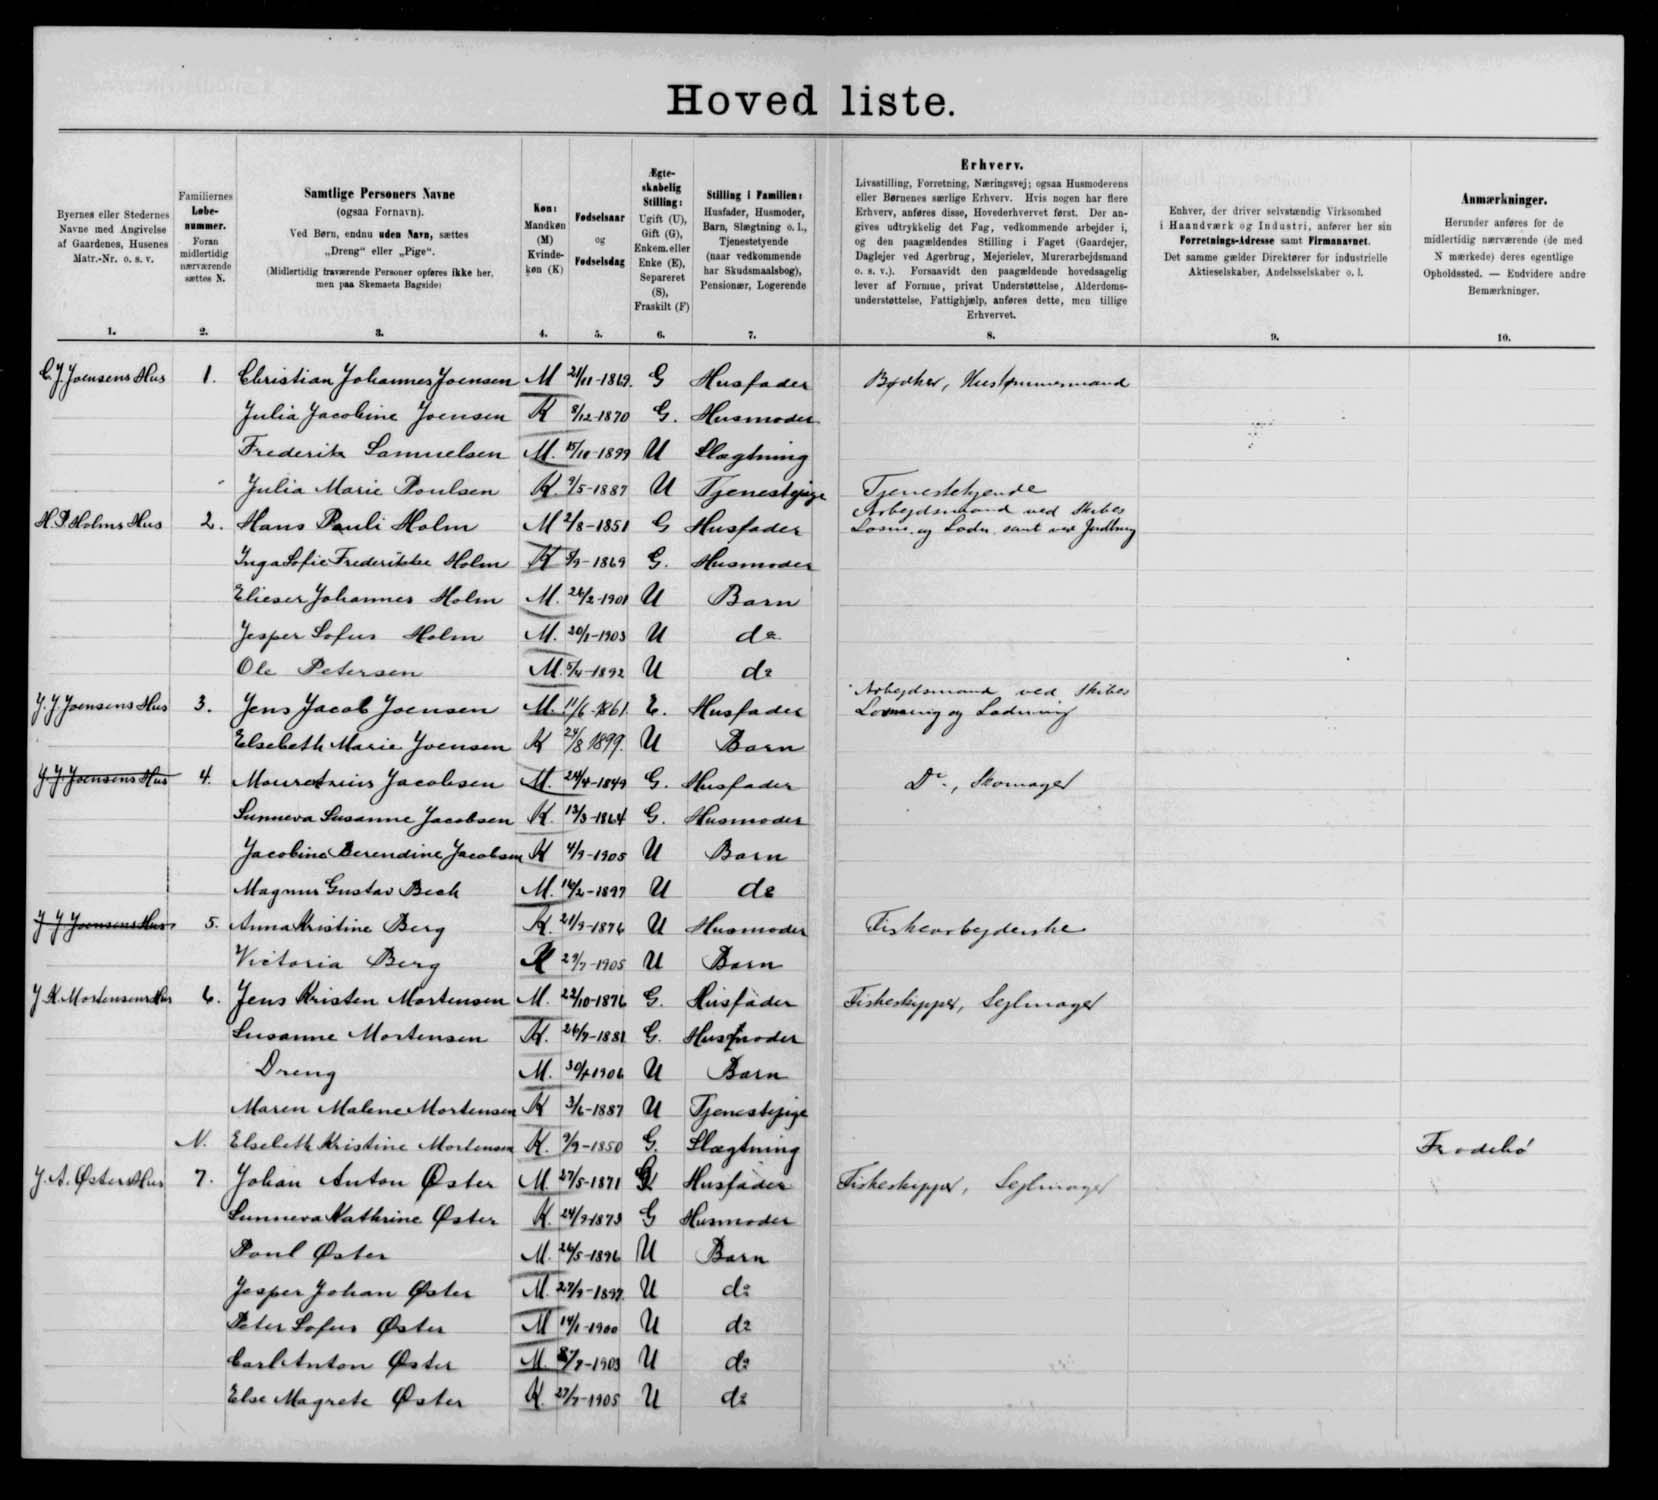 Hoved liste.
Byernes eller Stedernes
Navne med Angivelse
af Gaardenes, Husenes
Matr.-Nr. o. s. v.
1.
Familiernes
Løbe-
nummer.
Foran
midlertidig
nærværende
sættes N.
2.
Samtlige Personers Navne
(ogsaa Fornavn).
Ved Børn, endnu uden Navn, sættes
„Dreng“ eller „Pige“.
(Midlertidig fraværende Personer opføres ikke her,
men paa Skemaets Bagside)
3.
Køn:
Mandkøn
(M)
Kvinde-
køn (K)
4.
Fødselsaar
og
Fødselsdag
5.
Ægte-
skabelig
Stilling:
Ugift (U),
Gift (G),
Enkem. eller
Enke (E),
Separeret
(S),
Fraskilt (F)
6.
Stilling i Familien:
Husfader, Husmoder,
Barn, Slægtning o. l.,
Tjenestetyende
(naar vedkommende
har Skudsmaalsbog),
Pensionær, Logerende
7.
Erhverv.
Livsstilling, Forretning, Næringsvej; ogsaa Husmoderens
eller Børnenes særlige Erhverv. Hvis nogen har flere
Erhverv, anføres disse, Hovederhvervet først. Der an-
gives udtrykkelig det Fag, vedkommende arbejder i,
og den paagældendes Stilling i Faget (Gaardejer,
Daglejer ved Agerbrug, Mejerielev, Murerarbejdsmand
o. s. v.). Forsaavidt den paagældende hovedsagelig
lever af Formue, privat Understøttelse, Alderdoms-
understøttelse, Fattighjælp, anføres dette, men tillige
Erhvervet.
8.
Enhver, der driver selvstændig Virksomhed
i Haandværk og Industri, anfører her sin
Forretnings-Adresse samt Firmanavnet.
Det samme gælder Direktører for industrielle
Aktieselskaber, Andelsselskaber o. l.
9.
Anmærkninger.
Herunder anføres for de
midlertidig nærværende (de med
N mærkede) deres egentlige
Opholdssted. — Endvidere andre
Bemærkninger.
10.
C. J. Joensens Hus 1. Christian Johannes Joensen M 21/11-1869. G Husfader Bødker, Hustømmermand
Julia Jacobine Joensen K 8/12-1870 G. Husmoder
Frederik Samuelsen M. 15/10-1899 U Slægtning
Julia Marie Poulsen K. 9/5-1887 U Tjenestepige Tjenestetyende
H. P. Holms Hus 2. Hans Pauli Holm M 2/8-1851 G Husfader Arbejdsmand ved Skibes
Losn. og Ladn. samt ved Jordbrug
Inga Sofie Frederikke Holm K /9-1869 G. Husmoder
Elieser Johannes Holm M. 26/2-1901 U Barn
Jesper Sofus Holm M. 20/1-1903 U do
Ole Petersen M. 5/4-1892 U do
J. J. Joensens Hus 3. Jens Jacob Joensen M. 11/6-1861 E. Husfader Arbejdsmand ved Skibes
Losning og Ladning
Elsebeth Marie Joensen K 24/8 1899. U Barn
J. J. Joensens Hus 4. Jacobsen M. 24/4-1849 G. Husfader Do., Skomager
Sunneva Susanne Jacobsen K. 13/3-1864 G. Husmoder
Jacobine Berendine Jacobsen K 4/9-1905 U Barn
Magnus Gustav Beck M. 16/2-1897 U do
J J Joensens Hus 5. Anna Kristine Berg K. 21/9-1876 U Husmoder Fiskearbejderske
Victoria Berg K 29/7-1905 U Barn
J. K. Mortensens Hus 6. Jens Kristen Mortensen M. 22/10-1876 G. Husfader Fiskeskipper, Sejlmager
Susanne Mortensen K. 26/9-1881 G. Husmoder
Dreng M. 30/1-1906 U Barn
Maren Malene Mortensen K 3/6-1887 U Tjenestepige
N. Elsebeth Kristine Mortensen K. 9/9-1850 G. Slægtning Frodebø
J. A. Østers Hus 7. Johan Anton Øster M 27/5-1871 G Husfader Fiskeskipper, Sejlmager
Sunneva Kathrine Øster K. 24/9-1873 G Husmoder
Poul Øster M. 26/5-1896 U Barn
Jesper Johan Øster M. 27/9-1897 U do
Peter Sofus Øster M 14/1-1900 U do
Carl Anton Øster M. /7-1903 U do
Else Magrete Øster K. 27/7-1905 U do